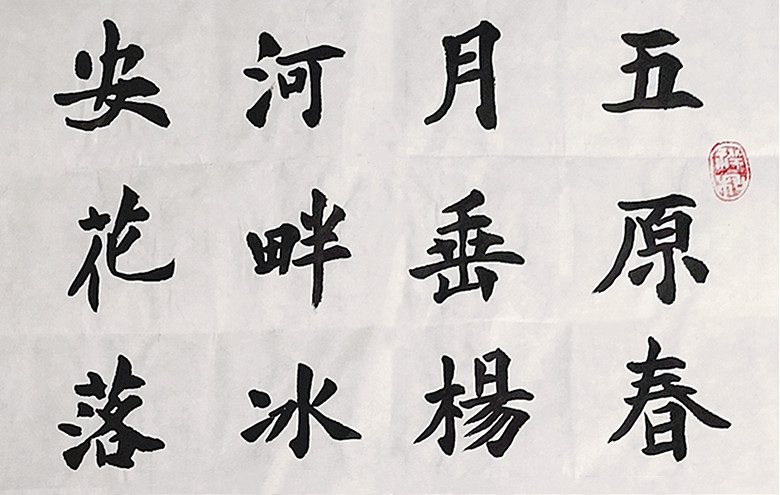 五原春
月垂楊
河畔冰
安花落